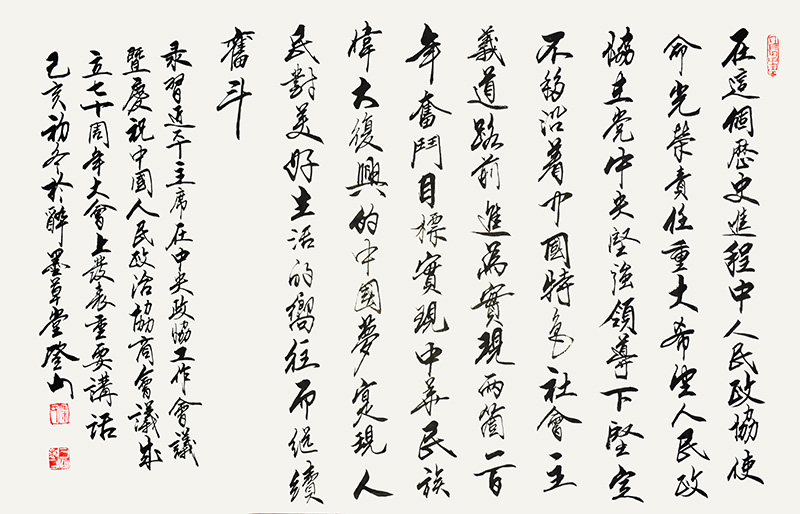 在這個歷史進程中人民政協使
命光榮責任重大希望人民政
協在党中央堅強領導下堅定
不移沿着中國特色社會主
義道路前進為實現兩箇一百
年奮鬥目標實現中華民族
偉大復興的中國夢實現人
民對美好生活的嚮往而繼續
奮斗
录習近平主席在中央政協工作會議
暨慶祝中國人民政治協商會議成
立七十周年大會上發表重要講話
己亥初冬於醉墨草堂登山